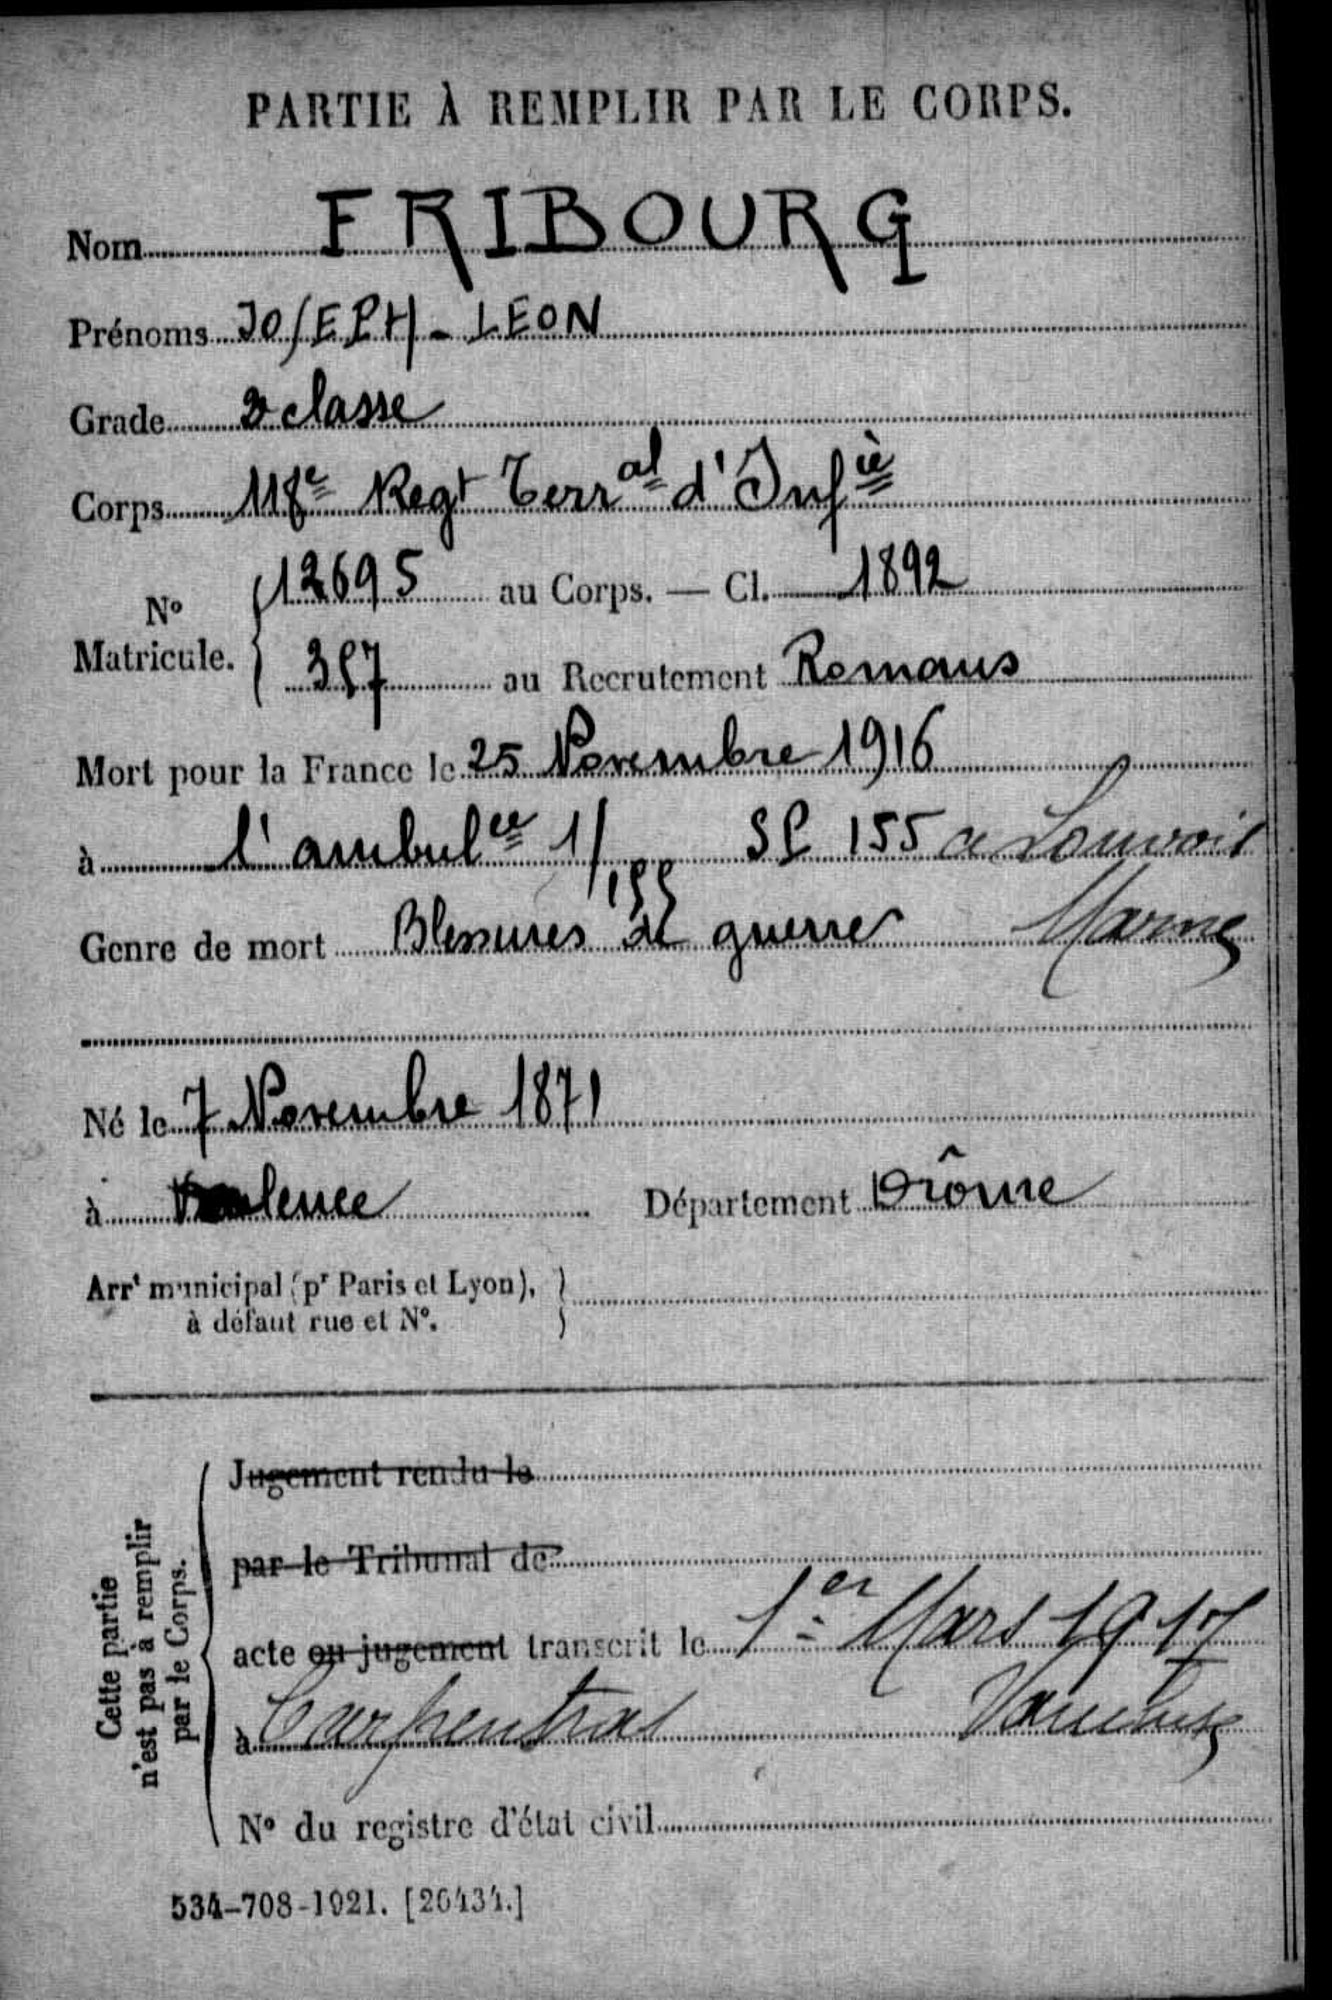 PARTIE À REMPLIR PAR LE CORPS.
Nom FRIBOURG
Prénoms JOSEPH - LEON
Grade 2e classe
Corps 118e Regt Terral d'Infie
N° Matricule. { 12695 au Corps. — Cl. 1892
357 au Recrutement Romans
Mort pour la France le 25 Novembre 1916
à l'ambulce 1/155 SP 155 a Louvois
Genre de mort Blessures de guerre Marne
Né le 7 Novembre 1871
à Valence Département Drôme
Arrt municipal (pr Paris et Lyon), }
à défaut rue et N°.
Cette partie
n'est pas à remplir
par le Corps.
Jugement rendu le
par le Tribunal de
acte ou jugement transcrit le 1er Mars 1917
à Carpentras Vaucluse
N° du registre d'état civil
534-708-1921. [26434.]